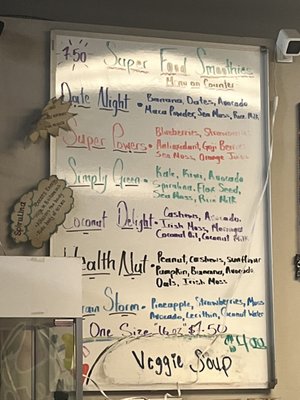 7.50 Super Food Smoothies
Menu on Counter
Date Night • Banana, Dates, Avocado
Maca Powder, Sea Moss, Rice Milk
Super Powers • Blueberries, Strawberries
Antioxidant, Goji Berries
Sea Moss, Orange Juice
Simply Green • Kale, Kiwi, Avocado
Spirulina, Flax Seed,
Sea Moss, Rice Milk
Coconut Delight • Cashews, Avocado,
Irish Moss, Moringa
Coconut Oil, Coconut Milk
Health Nut • Peanut, Cashews, Sunflower
Pumpkin, Banana, Avocado
Oats, Irish Moss
Storm • Pineapple, Strawberries, Moss
Avocado, Lecithin, Coconut Water
One Size 16 oz $7.50
Veggie Soup
Spirulina